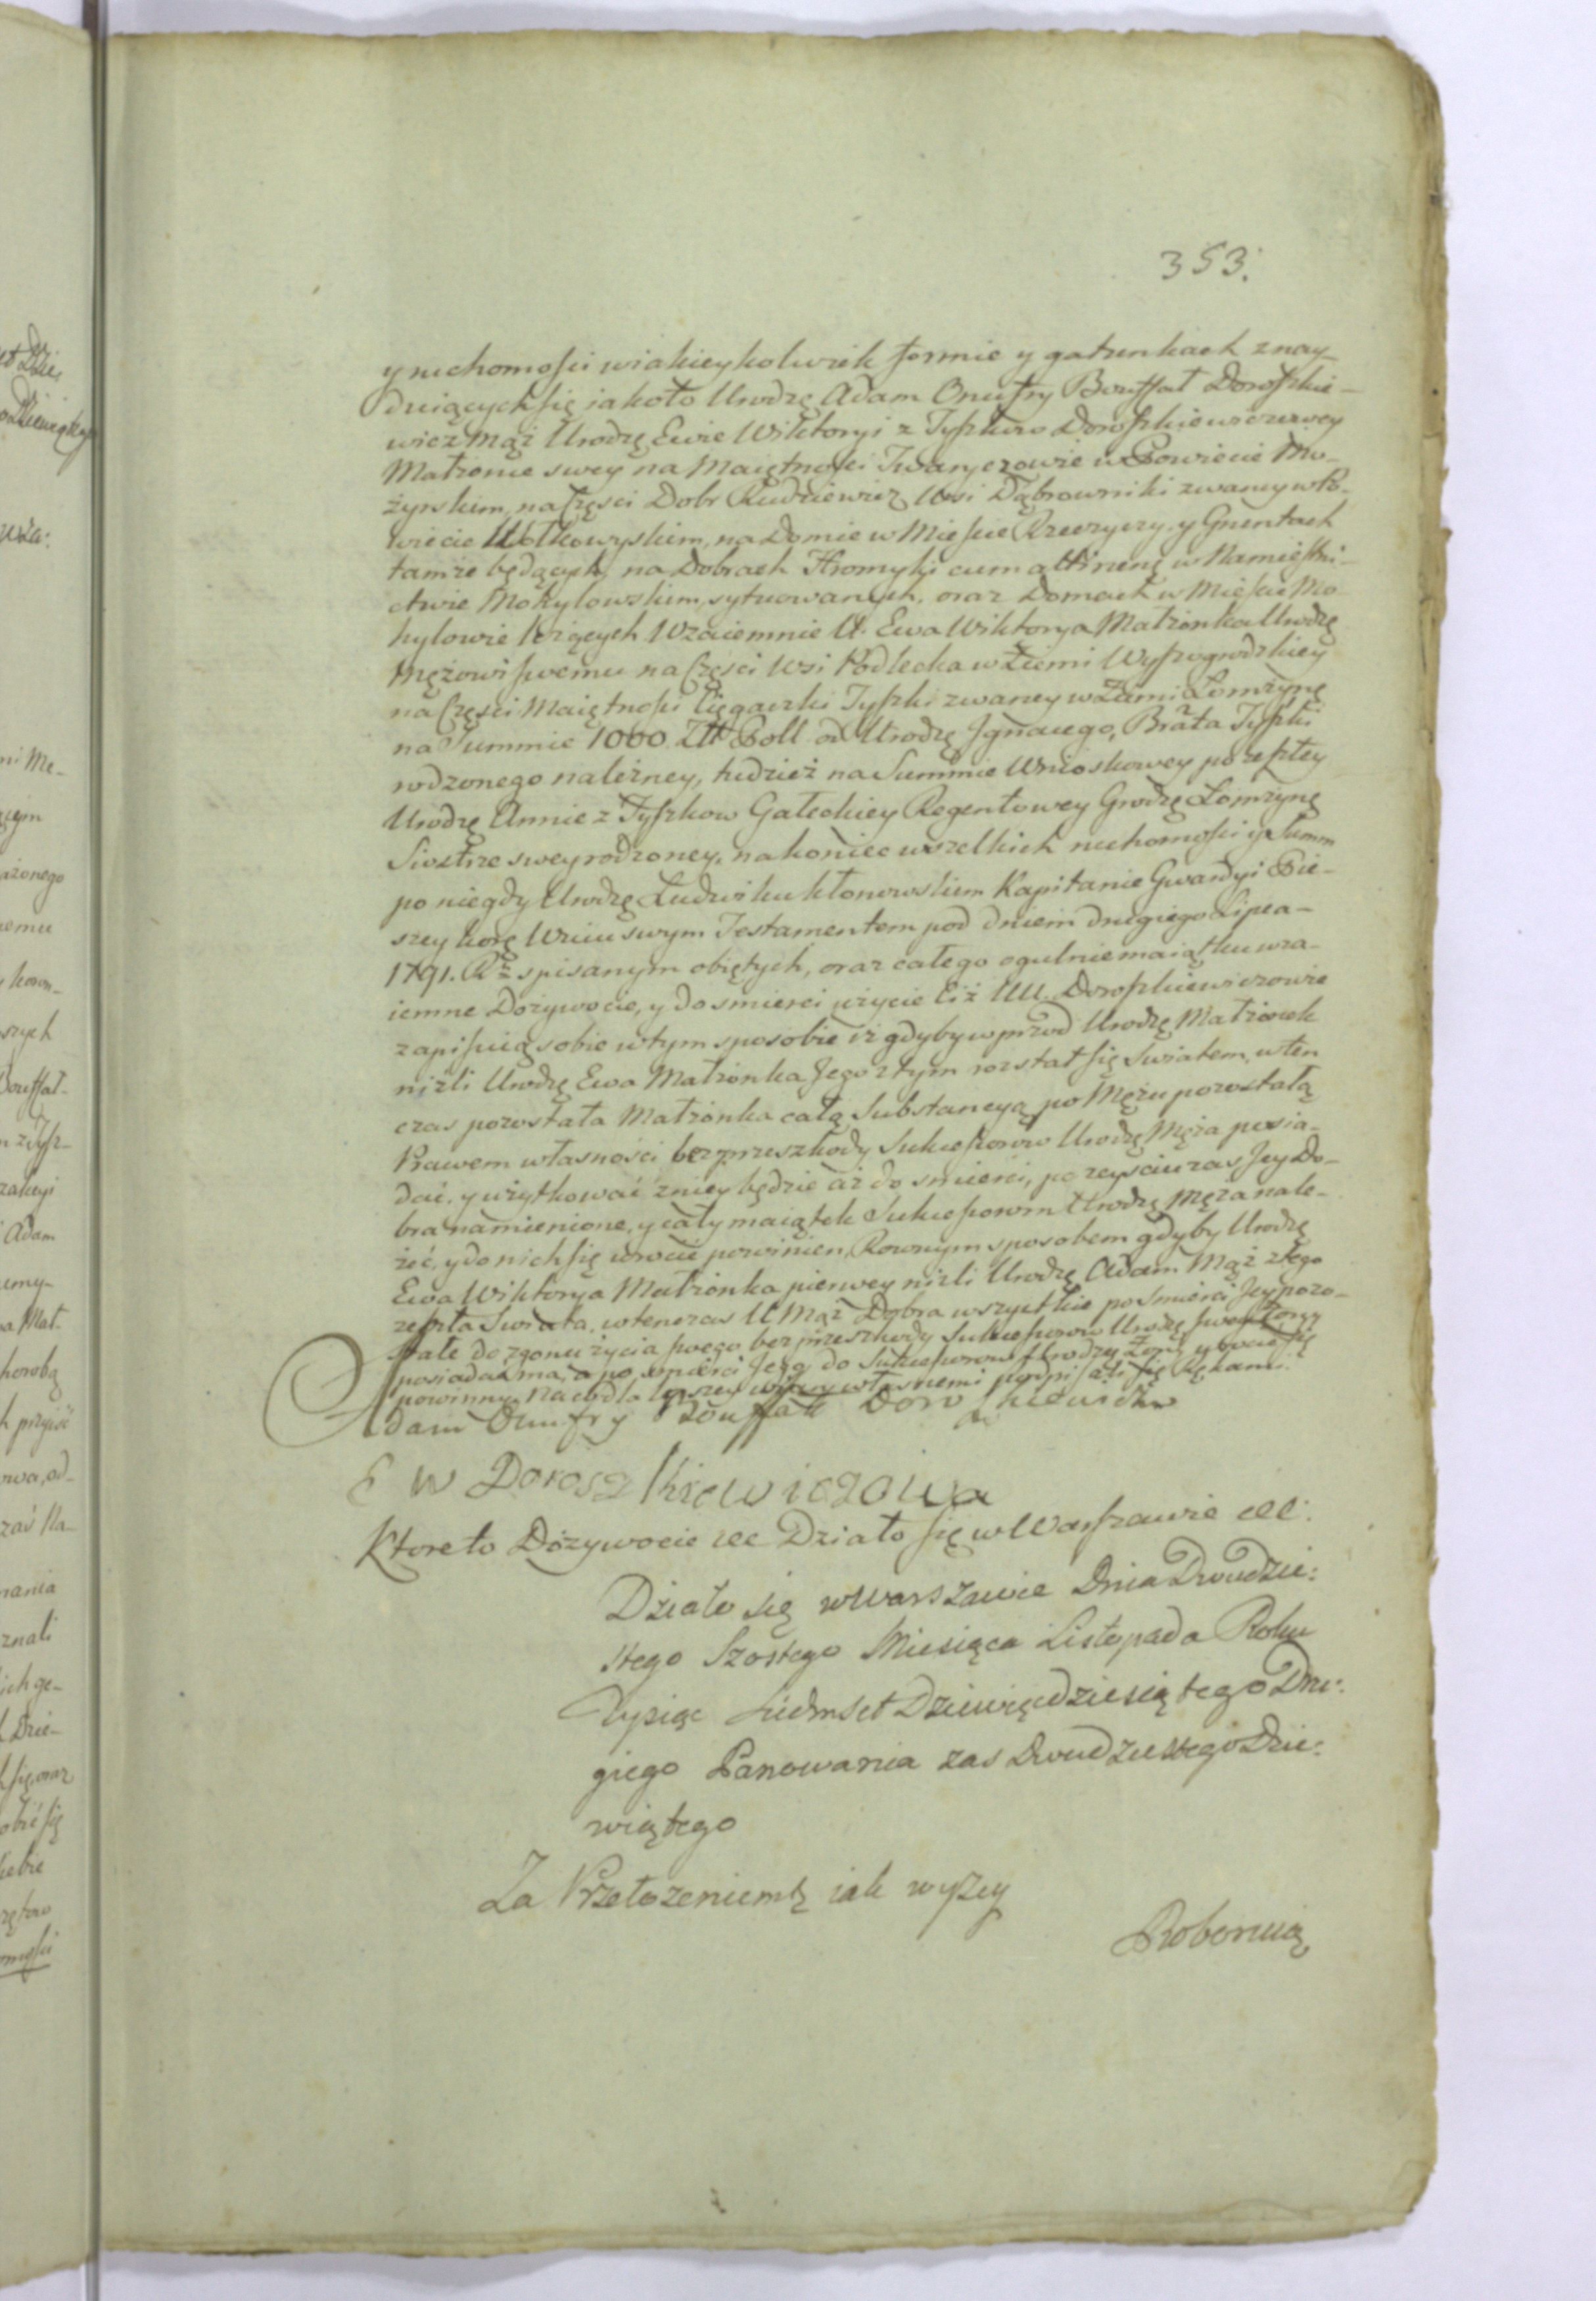 353.
y ruchomości wiakieykolwiek formie y gatunkach znay-
duiących się iakoto Urodzę Adam Onufry Bouffał Doroszkie-
wicz Mąż Urodzę Ewie Wiktoryi z Tyszkow Doroszkiewiczowey
Małżonce swey na Maiętności Iwanyczowie w Powiecie Mo-
zyrskim, na Części Dobr Rudziewicz Wsi Dąbrowniki zwaney w Po-
wiecie Wołkowyskim, na Domie w Mieście Rzeczyczy, y Gruntach
tamże będących, na Dobrach Hromyki cum attinenę w Namiestni-
ctwie Mohylowskim, sytuowanych, oraz Domach w Mieście Mo-
hylowie leżących Wzaiemnie U. Ewa Wiktorya Małżonka Urodzę
Mężowi swemu na Części Wsi Podlecka w Ziemi Wyszogrodzkiey
na Części Maiętności Cięgaczki Tyszki zwaney w Ziemi Łomżynę
na Summie 1000 Złł Poll od Urodzę Ignacego, Brata Tyszki
rodzonego należney, tudzież na Summie Wnioskowey po zeszłey
Urodzę Annie z Tyszkow Gałeckiey Regentowey Grodzę Łomżynę
Siostrze swey rodzoney, nakoniec wszelkich ruchomości y Summ
po niegdy Urodzę Ludwiku Kłonowskim Kapitanie Gwardyi Pie-
szey Korę Wuiu swym Testamentem pod dniem drugiego Lipca
1791. Rę spisanym obiętych, oraz całego ogulnie maiątku wza-
iemne Dożywocie, y do śmierci użycie Ciż UU. Doroszkiewiczowie
zapisuią sobie w tym sposobie iż gdyby wprzod Urodzę Małżonek
niżli Urodzę Ewa Małżonka Jego z tym rozstał się Swiatem, w ten
czas pozostała Małżonka całą Substancyą po Mężu pozostałą
Prawem własności bez przeszkody Sukcessorow Urodzę Męża posia-
dać, y użytkować zniey będzie aż do śmierci, po zeyściu zas Jey Do-
bra namienione, y cały maiątek Sukcessorom Urodzę Męża nale-
żeć, y do nich się wrocić powinien, Rownym sposobem gdyby Urodzę
Ewa Wiktorya Małżonka pierwey niżli Urodzę Adam Mąż z tego
zeszła Swiata, wtenczas U Mąż Dobra wszystkie po Smierci Jey pozo-
stałe do zgonu życia swego bez przeszkody Sukcessorow Urodzę swey Żony
posiadać ma, a po śmierci Jego do Sukcessorow Urodzę Żony wrocić się
powinny. Na co dla lepszey wiary własnemi podpisali się Rękami.
Adam Onufry Bouffał Doroszkiewicz
E W Doroszkiewiczowa
Ktoreto Dożywocie etc Działo się w Warszawie etc:
Działo się w Warszawie Dnia Dwudzie:
stego Szostego Miesiąca Listopada Roku
Tysiąc Siedmset Dziewięćdziesiątego Dru:
giego Panowania zas Dwudziestego Dzie:
wiątego
Za Przełożeniem ię iak wyżey
Roboruią